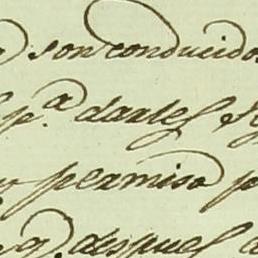 son conducidos
p.ª darles
permiso
despues